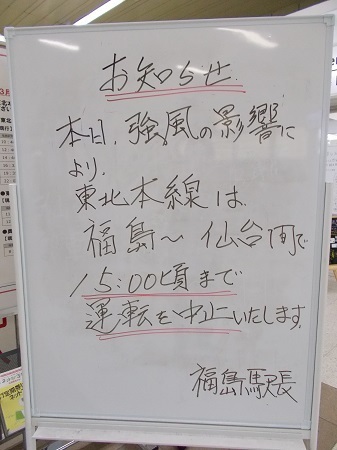 お知らせ
本日、強風の影響に
より、
東北本線は、
福島～仙台間で
15:00頃まで
運転を中止いたします。
福島駅長